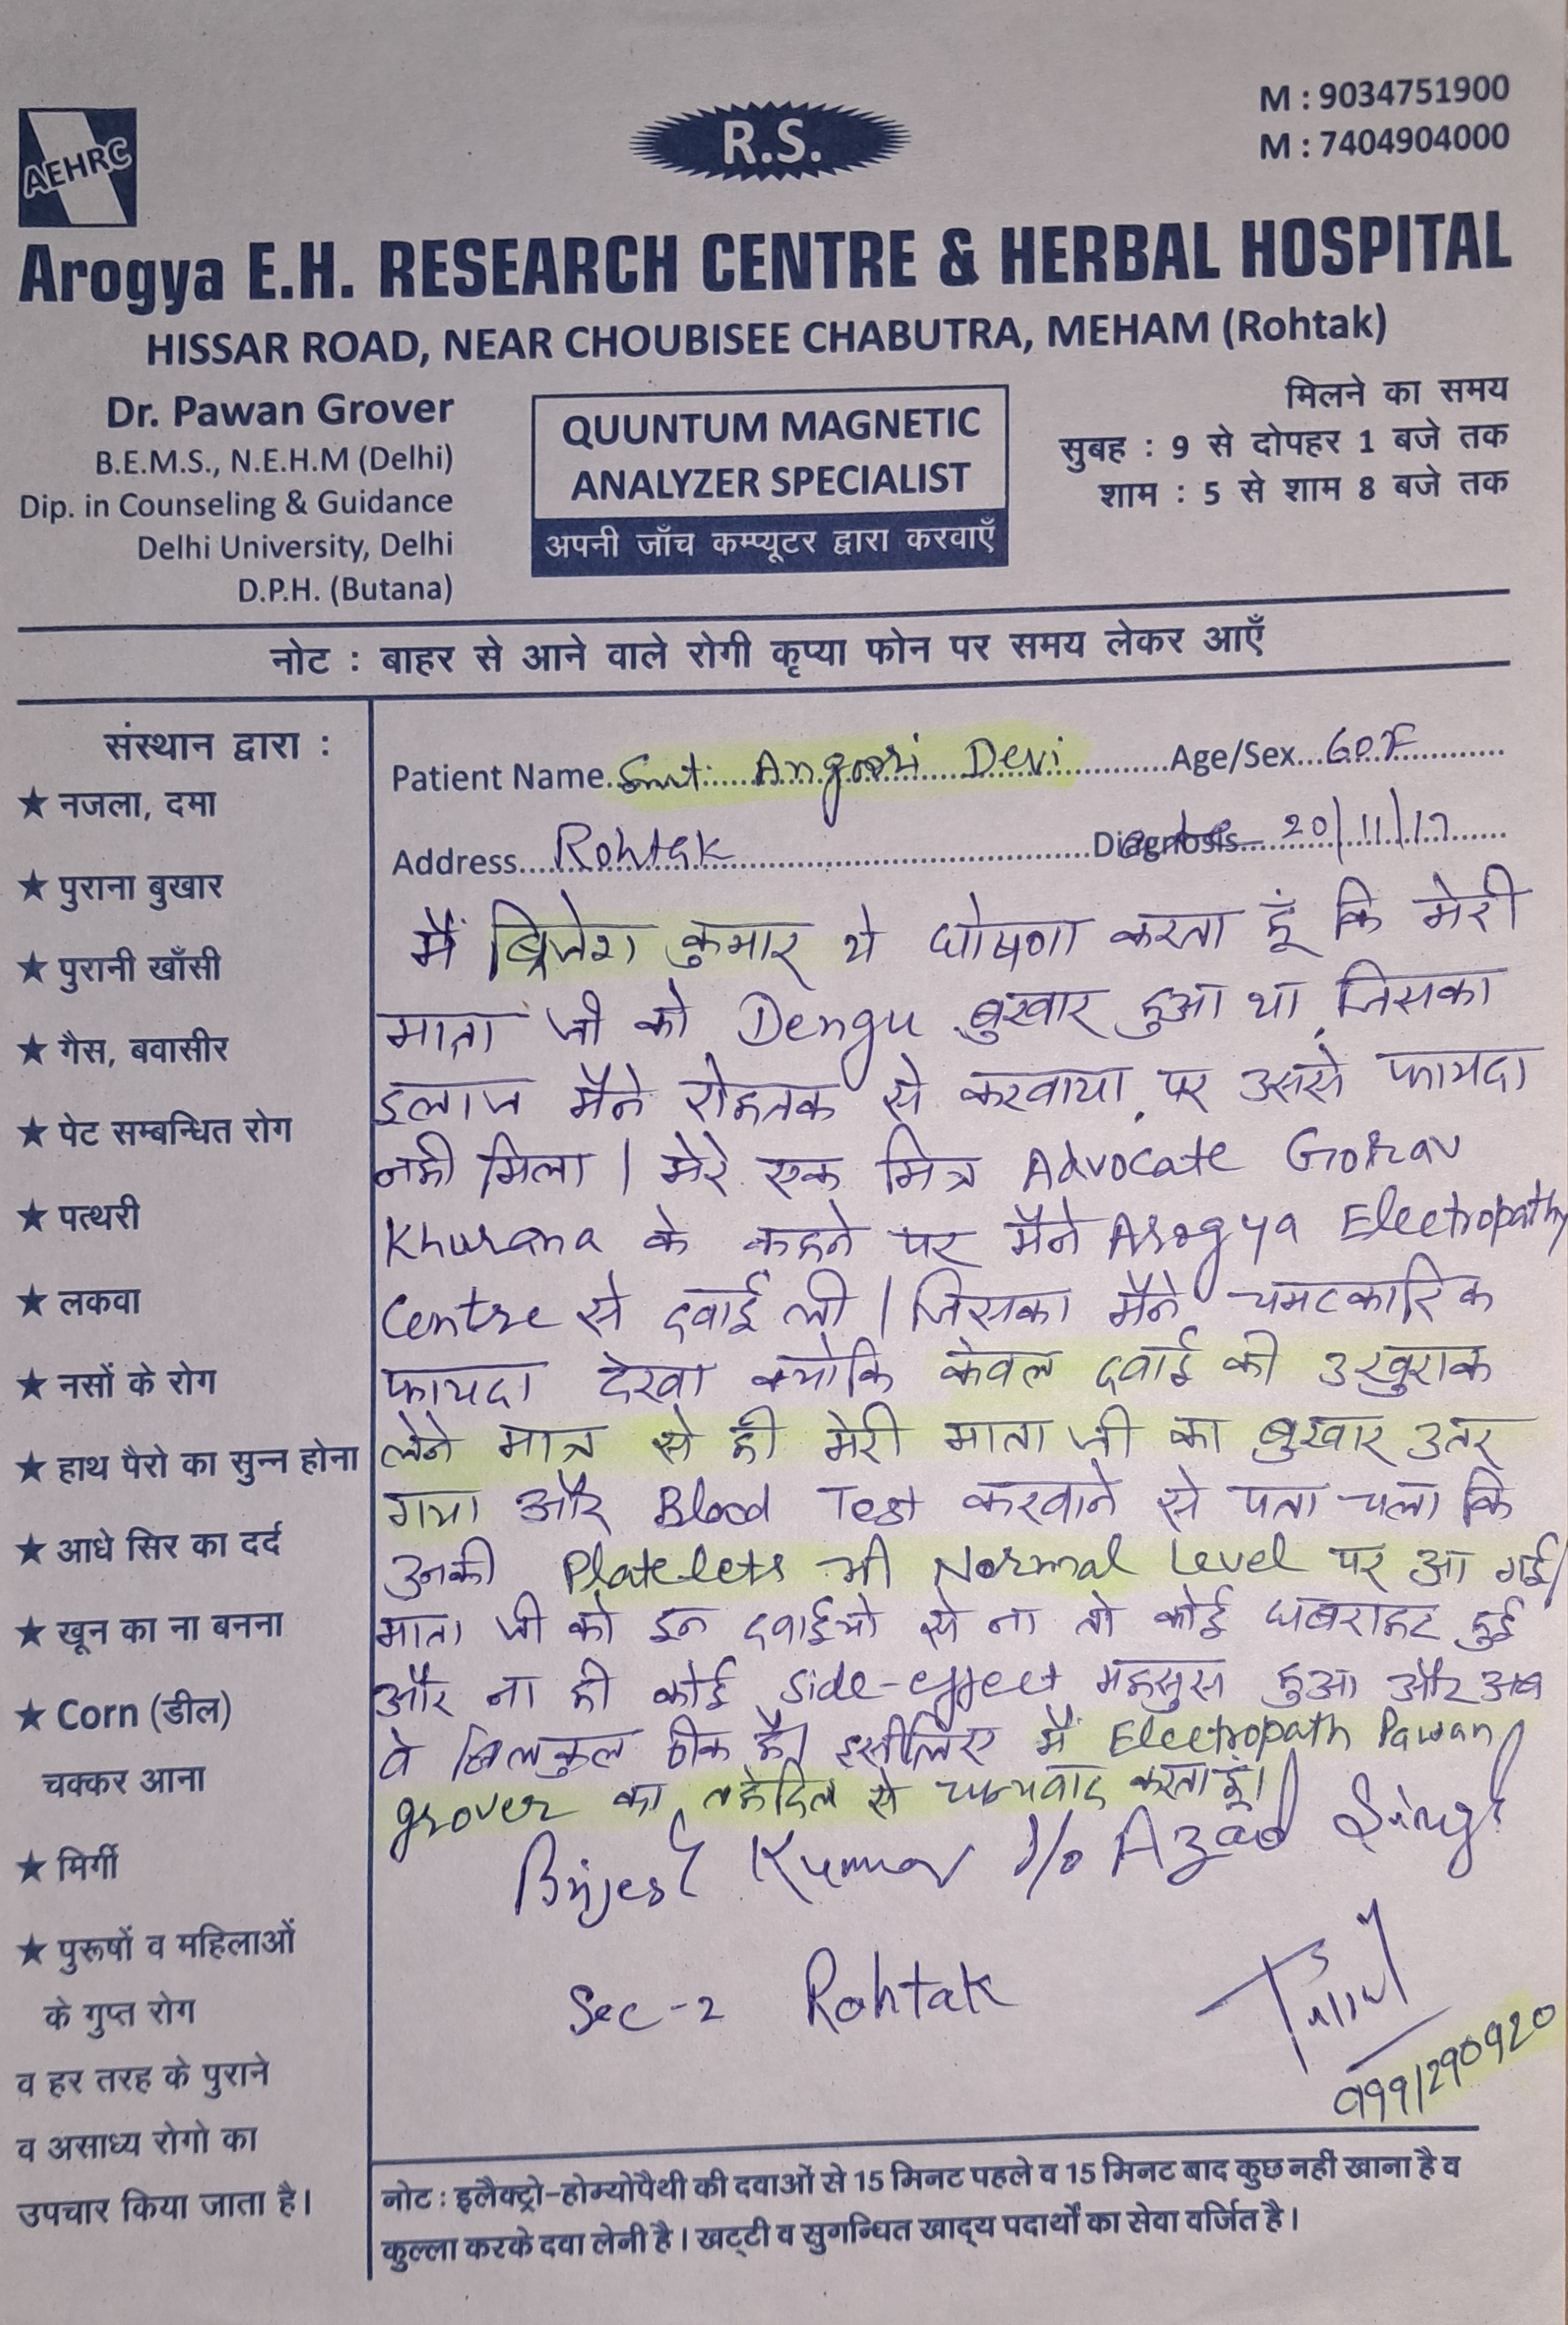 AEHRC
R.S.
M : 9034751900
M : 7404904000
Arogya E.H. RESEARCH CENTRE & HERBAL HOSPITAL
HISSAR ROAD, NEAR CHOUBISEE CHABUTRA, MEHAM (Rohtak)
Dr. Pawan Grover
B.E.M.S., N.E.H.M (Delhi)
Dip. in Counseling & Guidance
Delhi University, Delhi
D.P.H. (Butana)
QUUNTUM MAGNETIC
ANALYZER SPECIALIST
अपनी जाँच कम्प्यूटर द्वारा करवाएँ
मिलने का समय
सुबह : 9 से दोपहर 1 बजे तक
शाम : 5 से शाम 8 बजे तक
नोट : बाहर से आने वाले रोगी कृप्या फोन पर समय लेकर आएँ
संस्थान द्वारा :
★ नजला, दमा
★ पुराना बुखार
★ पुरानी खाँसी
★ गैस, बवासीर
★ पेट सम्बन्धित रोग
★ पत्थरी
★ लकवा
★ नसों के रोग
★ हाथ पैरो का सुन्न होना
★ आधे सिर का दर्द
★ खून का ना बनना
★ Corn (डील)
चक्कर आना
★ मिर्गी
★ पुरूषों व महिलाओं
के गुप्त रोग
व हर तरह के पुराने
व असाध्य रोगो का
उपचार किया जाता है।
Patient Name Smt. Angoori Devi Age/Sex 60 F
Address Rohtak Diagnosis 20/11/17
मैं ब्रिजेश कुमार ये घोषणा करता हूँ कि मेरी
माता जी को Dengu बुखार हुआ था, जिसका
इलाज मैने रोहतक से करवाया, पर उससे फायदा
नही मिला। मेरे एक मित्र Advocate Gorav
Khurana के कहने पर मैने Arogya Electropathy
Centre से दवाई ली। जिसका मैने चमटकारिक
फायदा देखा क्योकि केवल दवाई की 3 खुराक
लेने मात्र से ही मेरी माता जी का बुखार उतर
गया और Blood Test करवाने से पता चला कि
उनकी Platelets भी Normal Level पर आ गई।
माता जी को इन दवाईयो से ना तो कोई घबराहट हुई
और ना ही कोई side-effect महसुस हुआ और अब
वे बिलकुल ठीक है। इसीलिए मैं Electropath Pawan
grover का तहेदिल से धन्यवाद करता हूं।
Brijesh Kumar S/o Azad Singh
Sec-2 Rohtak
9991290920
नोट : इलैक्ट्रो-होम्योपैथी की दवाओं से 15 मिनट पहले व 15 मिनट बाद कुछ नहीं खाना है व
कुल्ला करके दवा लेनी है। खट्टी व सुगन्धित खाद्य पदार्थों का सेवा वर्जित है।